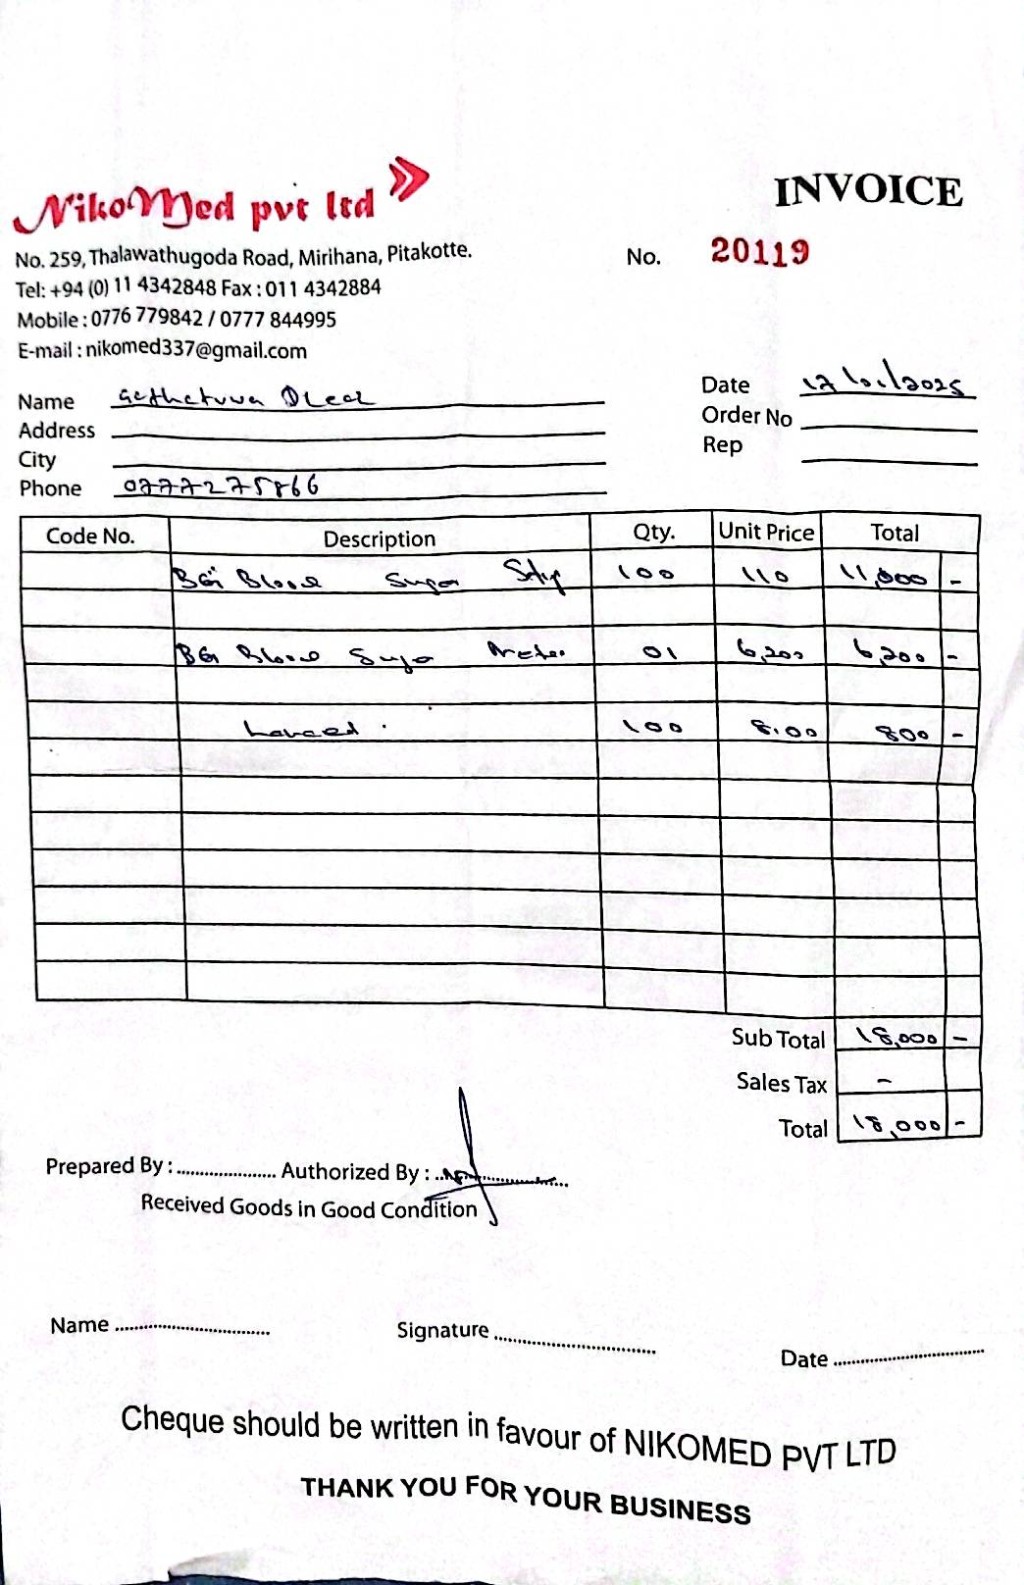 NikoMed pvt ltd
INVOICE
No. 259, Thalawathugoda Road, Mirihana, Pitakotte.
No. 20119
Tel: +94 (0) 11 4342848 Fax : 011 4342884
Mobile : 0776 779842 / 0777 844995
E-mail : nikomed337@gmail.com
Name
Date /01/2025
Address
Order No
City
Rep
Phone 0777275866
Code No. Description Qty. Unit Price Total
BG Blood Sugar Strip 100 110 11,000 -
BG Blood Sugar Meter 01 6,200 6,200 -
100 8.00 800 -
Sub Total 18,000 -
Sales Tax -
Total 18,000 -
Prepared By : .................... Authorized By : ....................
Received Goods in Good Condition
Name ....................
Signature ....................
Date ....................
Cheque should be written in favour of NIKOMED PVT LTD
THANK YOU FOR YOUR BUSINESS